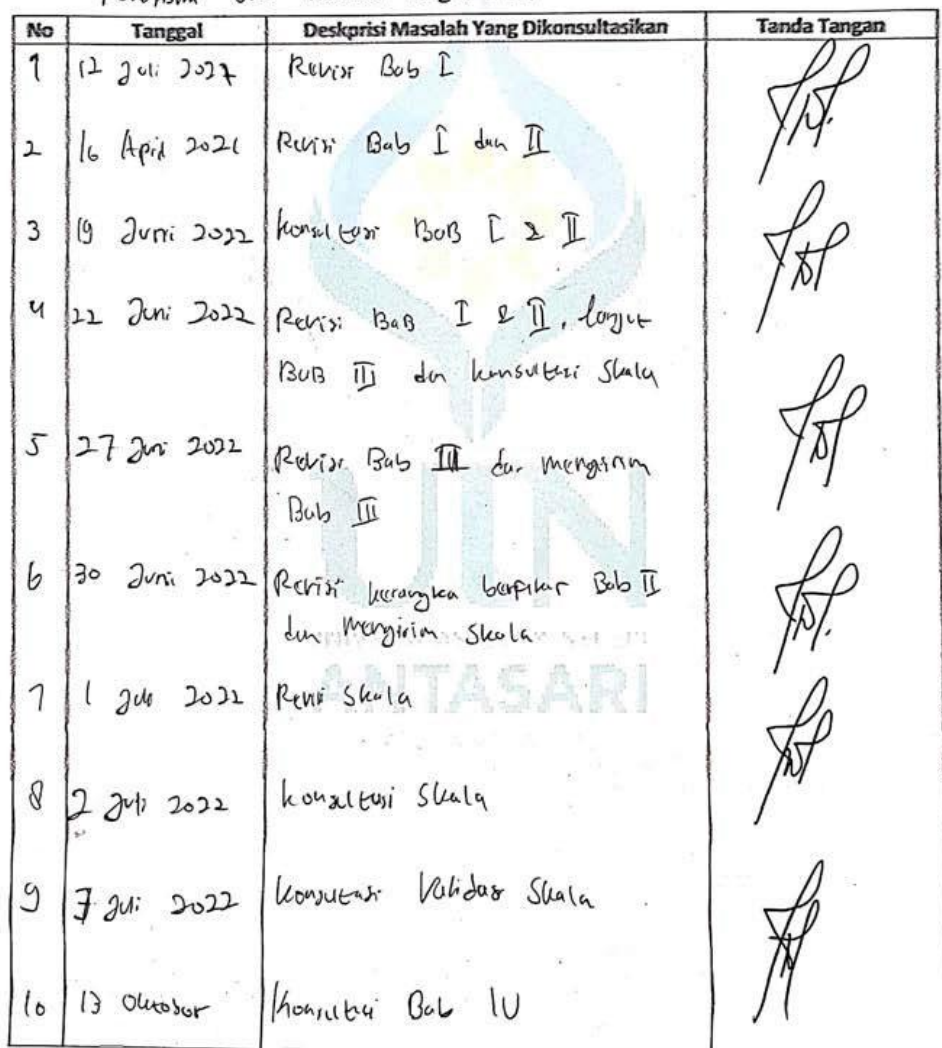 No Tanggal Deskprisi Masalah Yang Dikonsultasikan Tanda Tangan
1 12 Juli Revisi Bab I
2 16 April 2021 Revisi Bab I dan II
3 19 Juni 2022 Konsultasi BAB I & II
4 22 Juni 2022 Revisi BAB I & II, lanjut
BAB III dan konsultasi Skala
5 27 Juni 2022 Revisi Bab III dan mengirim
Bab III
6 30 Juni 2022 Revisi kerangka berfikir Bab II
dan Mengirim Skala
7 1 Juli 2022 Revisi Skala
8 2 Juli 2022 konsultasi Skala
9 7 Juli 2022 Konsultasi Validas Skala
10 13 Oktober Konsultasi Bab IV
UIN
ANTASARI